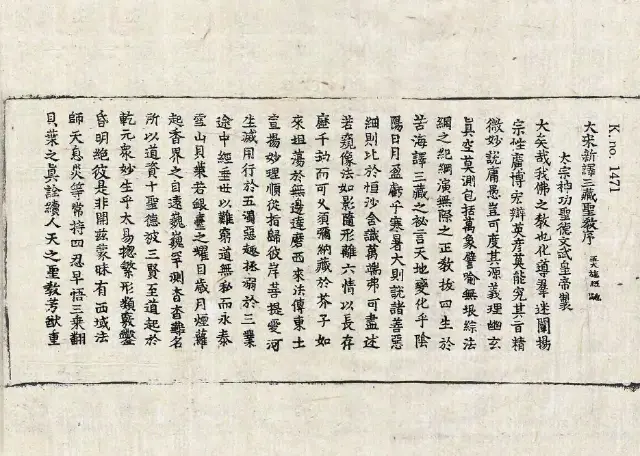 K. no. 1471
大宋新譯三藏聖教序
太宗神功聖德文武皇帝製
大矣哉我佛之教也化導羣迷闡揚
宗性廣博宏辯英彥莫能究其旨精
微妙說庸愚豈可度其源義理幽玄
眞空莫測包括萬象譬喻無垠綜法
網之紀綱演無際之正教拔四生於
苦海譯三藏之秘言天地變化乎陰
陽日月盈虧乎寒暑大則說諸善惡
細則比於恒沙含識萬端弗可盡述
若窺像法如影隨形離六情以長存
歷千劫而可久須彌納藏於芥子如
來坦蕩於無邊達磨西來法傳東土
宣揚妙理順從指歸彼岸菩提愛河
生滅用行於五濁惡趣拯溺於三業
途中經垂世以難窮道無私而永泰
雪山貝葉若銀臺之耀目歲月煙蘿
起香界之自遠巍巍罕測杳杳難名
所以道資十聖德被三賢至道起於
乾元衆妙生乎太易摠繁形類竅鑿
昏明絶彼是非開茲蒙昧有西域法
師天息災等常持四忍早悟三乘翻
貝葉之眞詮續人天之聖教芳猷重